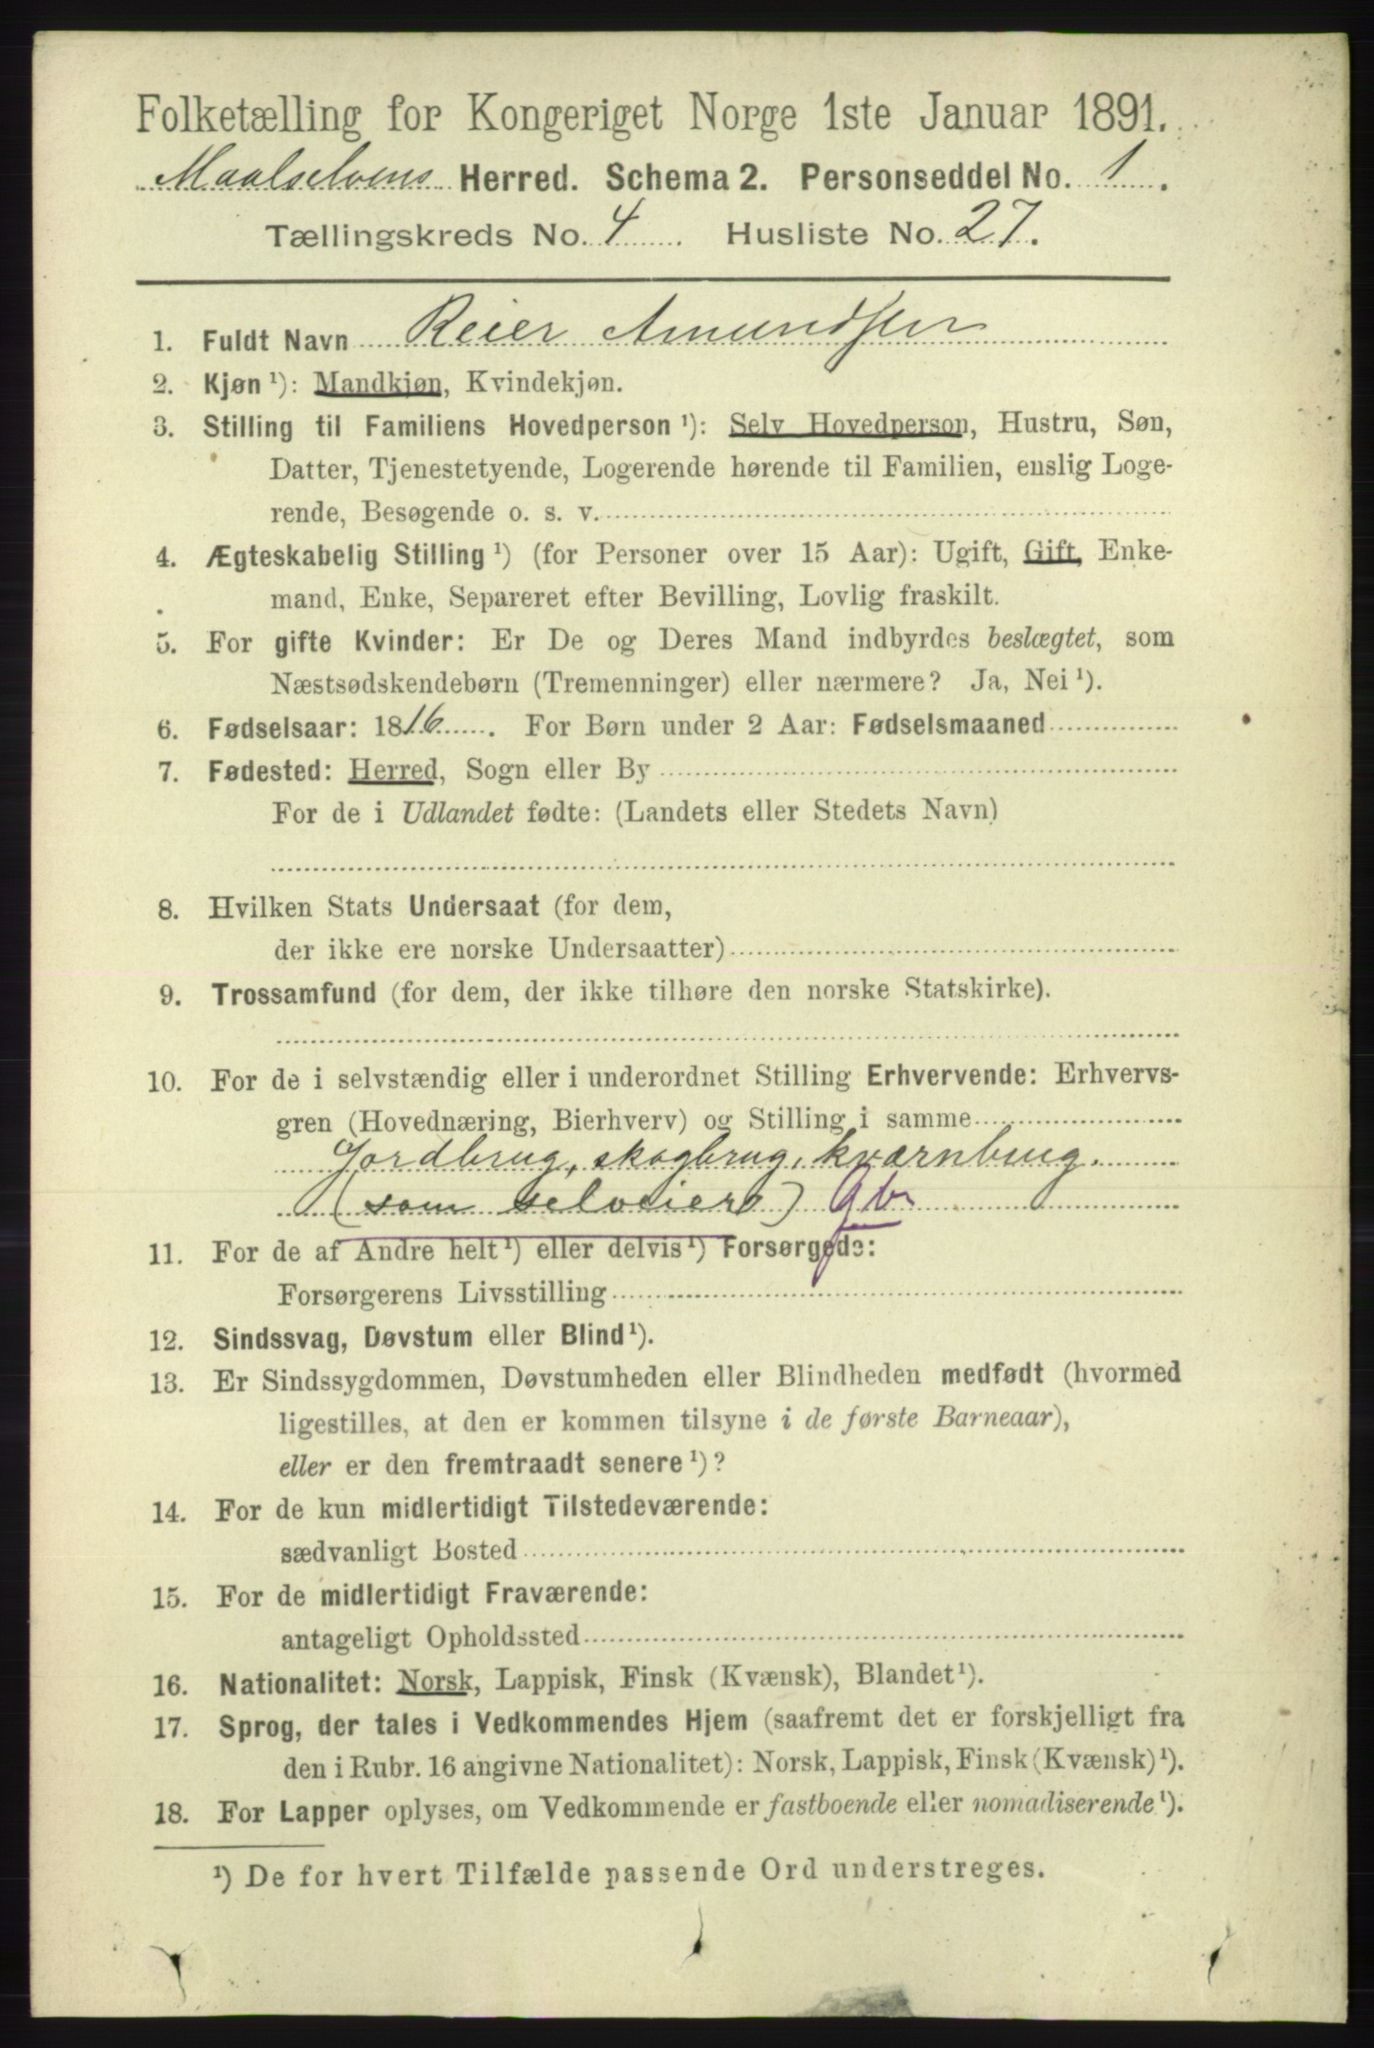 Folketælling for Kongeriget Norge 1ste Januar 1891.
Maalselvens Herred. Schema 2. Personseddel No. 1.
Tællingskreds No. 4 Husliste No. 27.
1. Fuldt Navn Reier Amundsen
2. Kjøn ¹): Mandkjøn, Kvindekjøn.
3. Stilling til Familiens Hovedperson ¹): Selv Hovedperson, Hustru, Søn,
Datter, Tjenestetyende, Logerende hørende til Familien, enslig Loge-
rende, Besøgende o. s. v.
4. Ægteskabelig Stilling ¹) (for Personer over 15 Aar): Ugift, Gift, Enke-
mand, Enke, Separeret efter Bevilling, Lovlig fraskilt.
5. For gifte Kvinder: Er De og Deres Mand indbyrdes beslægtet, som
Næstsødskendebørn (Tremenninger) eller nærmere? Ja, Nei ¹).
6. Fødselsaar: 1816. For Børn under 2 Aar: Fødselsmaaned
7. Fødested: Herred, Sogn eller By
For de i Udlandet fødte: (Landets eller Stedets Navn)
8. Hvilken Stats Undersaat (for dem,
der ikke ere norske Undersaatter)
9. Trossamfund (for dem, der ikke tilhøre den norske Statskirke).
10. For de i selvstændig eller i underordnet Stilling Erhvervende: Erhvervs-
gren (Hovednæring, Bierhverv) og Stilling i samme
Jordbrug, skogbrug, kværnbrug.
(som selveiero) Gb
11. For de af Andre helt ¹) eller delvis ¹) Forsørgede:
Forsørgerens Livsstilling
12. Sindssvag, Døvstum eller Blind ¹).
13. Er Sindssygdommen, Døvstumheden eller Blindheden medfødt (hvormed
ligestilles, at den er kommen tilsyne i de første Barneaar),
eller er den fremtraadt senere ¹)?
14. For de kun midlertidigt Tilstedeværende:
sædvanligt Bosted
15. For de midlertidigt Fraværende:
antageligt Opholdssted
16. Nationalitet: Norsk, Lappisk, Finsk (Kvænsk), Blandet ¹).
17. Sprog, der tales i Vedkommendes Hjem (saafremt det er forskjelligt fra
den i Rubr. 16 angivne Nationalitet): Norsk, Lappisk, Finsk (Kvænsk) ¹).
18. For Lapper oplyses, om Vedkommende er fastboende eller nomadiserende ¹).
¹) De for hvert Tilfælde passende Ord understreges.